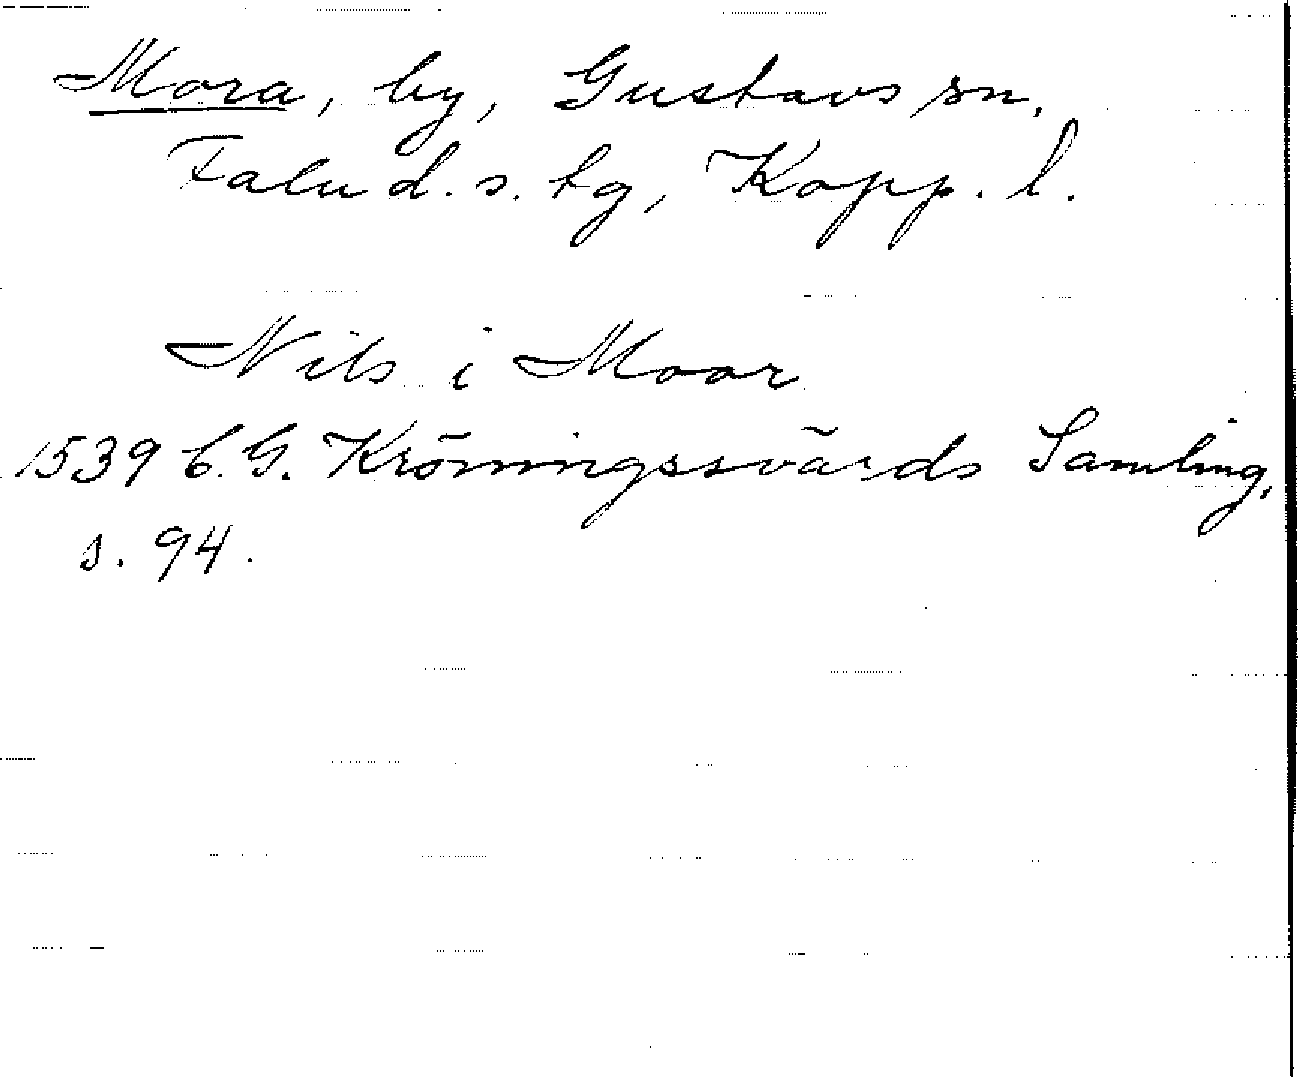 Mora, by, Gustavs sn.
Falu d. s. tg, Kopp. l.
Nils i Moor
1539 C. G. Kröningssvärds Samling,
s. 94.